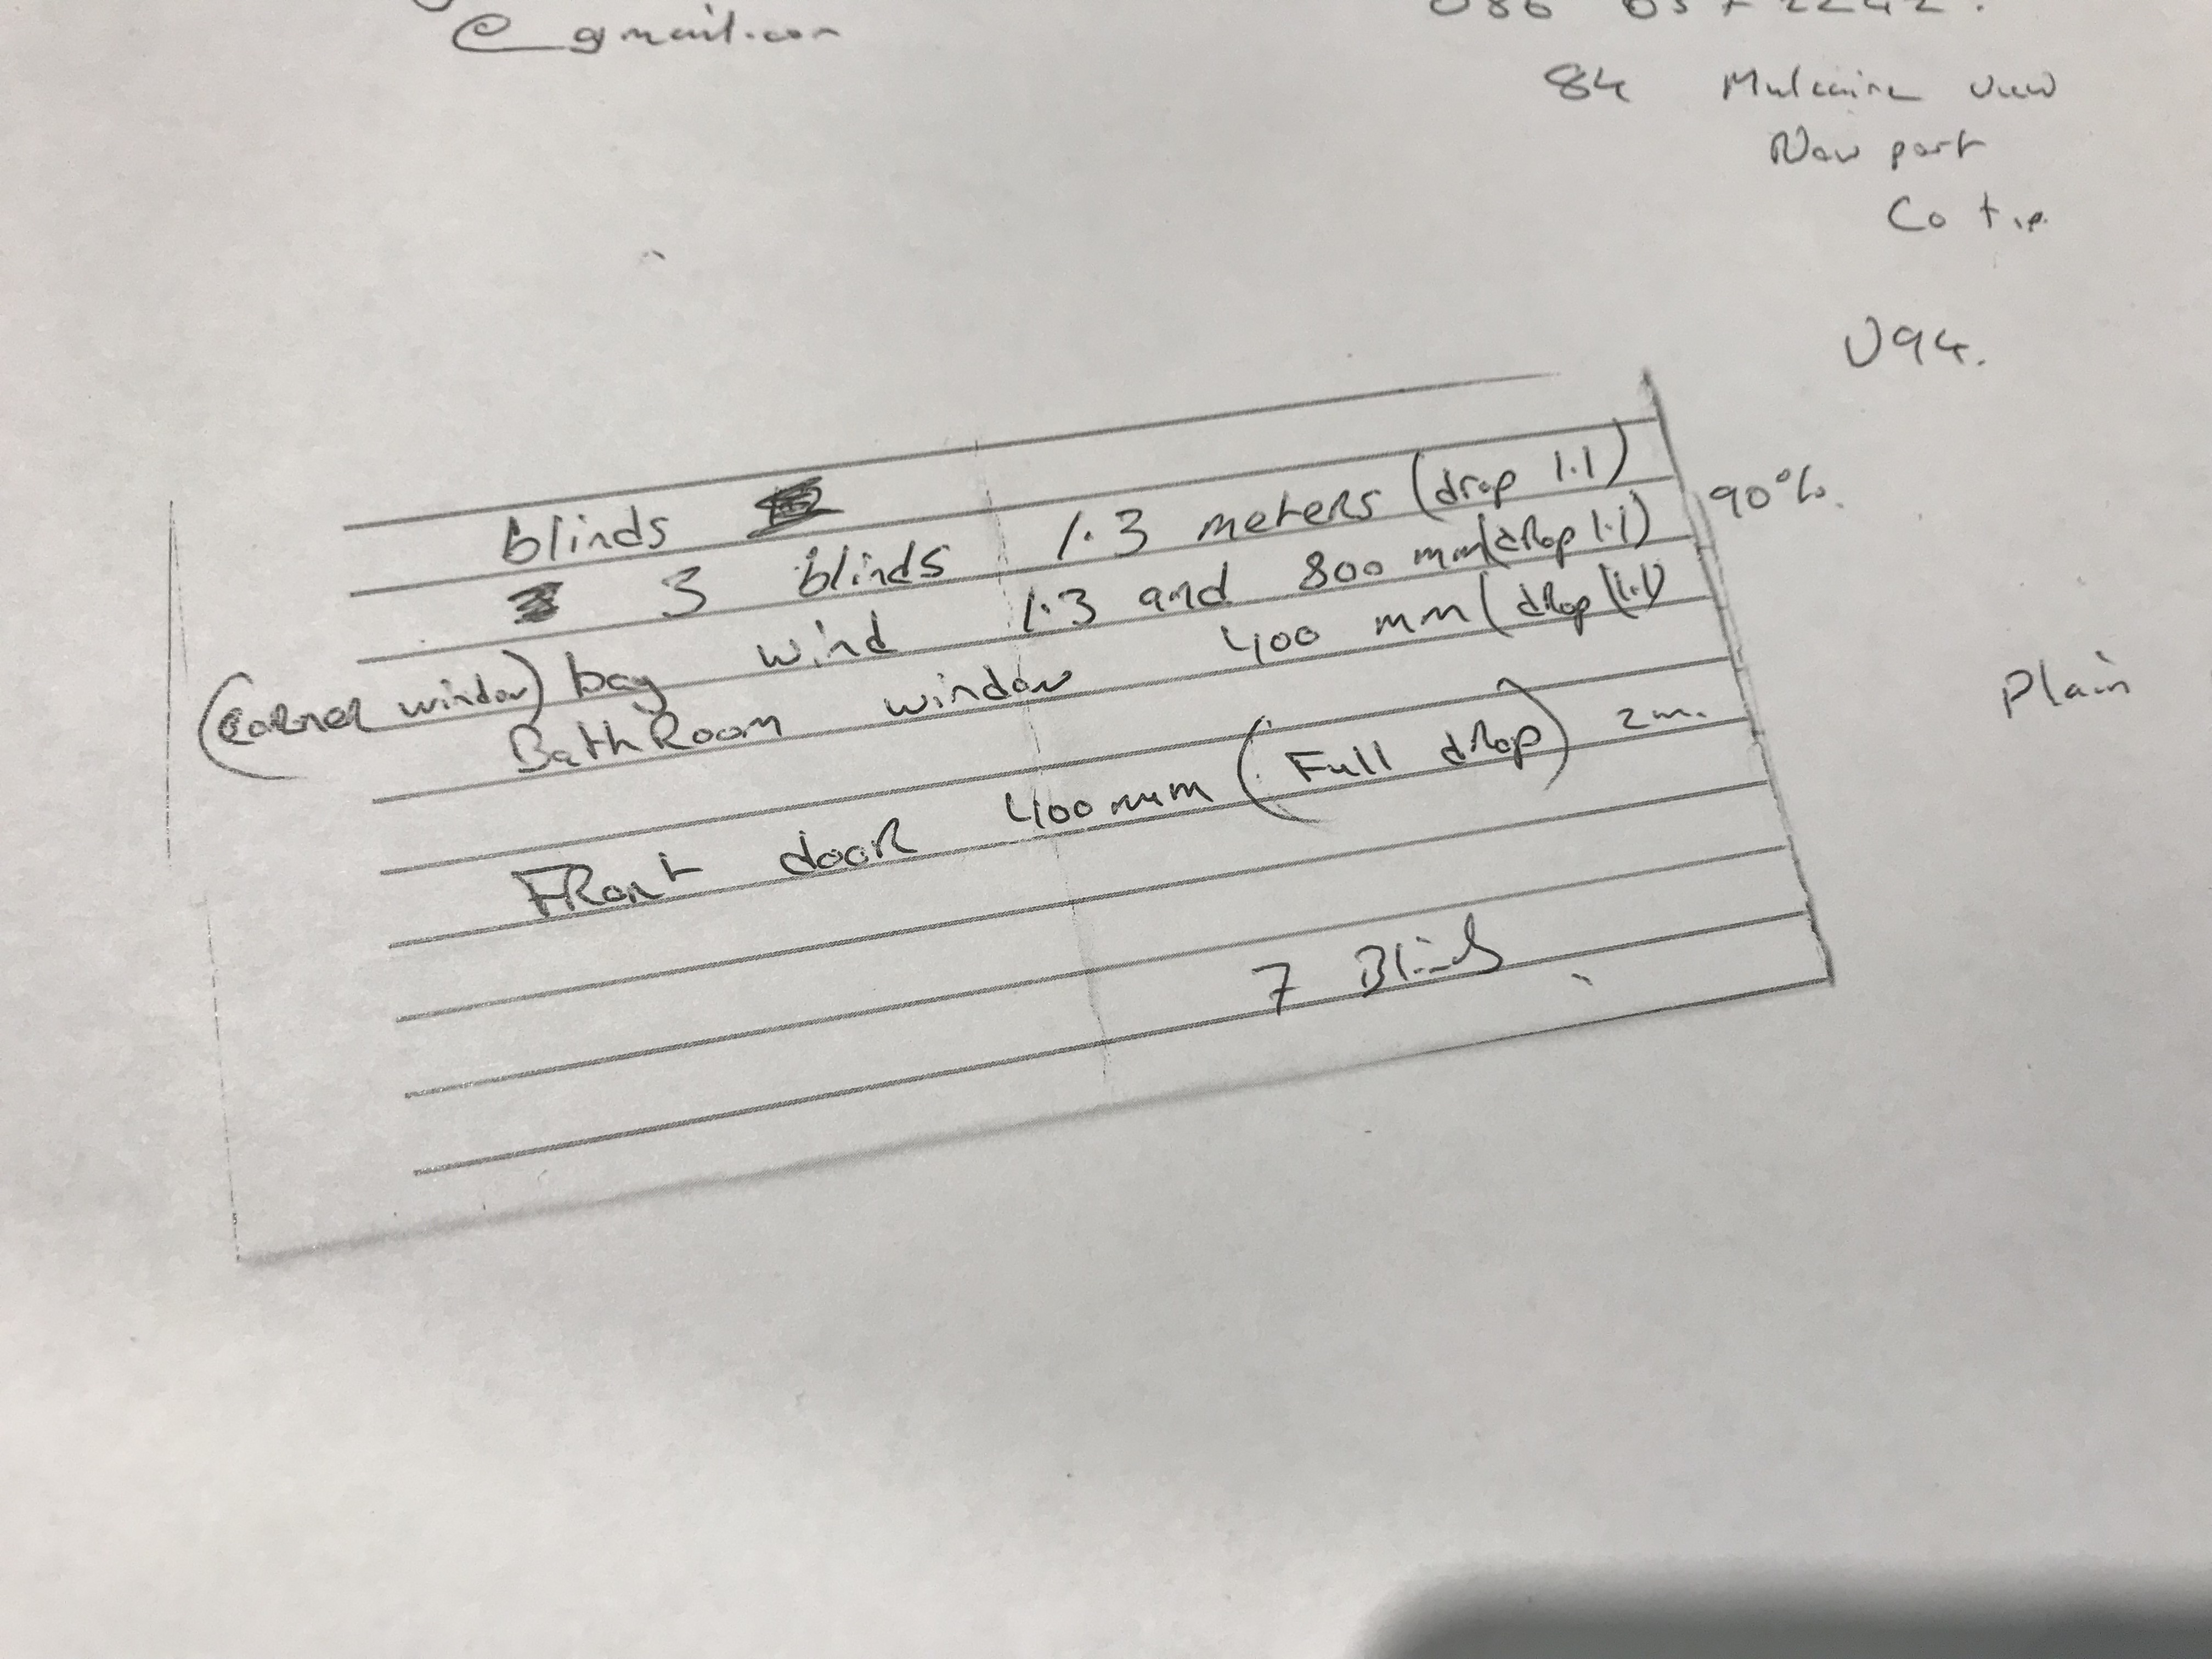 @gmail.com
84 Mulcaire View
New port
Co tip.
U94.
blinds
3 blinds 1.3 meters (drop 1.1)
90%.
(corner window) bay wind 1.3 and 800 mm (drop 1.1)
BathRoom window 400 mm (drop (1.1)
Plain
FRont dooR 400 mm (Full dRop) 2m.
7 Blinds